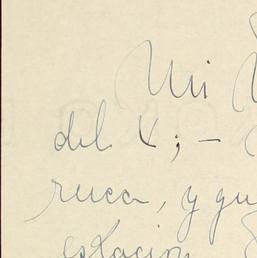 Mi
del X; -
rueca, y qu
estación